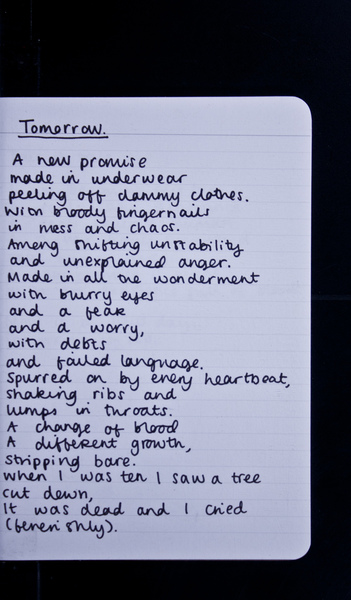 Tomorrow.
A new promise
made in underwear
peeling off clammy clothes.
With bloody fingernails
in mess and chaos.
Among shifting unstability
and unexplained anger.
Made in all the wonderment
with blurry eyes
and a fear
and a worry,
with debts
and failed language.
Spurred on by every heartbeat,
shaking ribs and
lumps in throats.
A change of blood
A different growth,
stripping bare.
when I was ten I saw a tree
cut down,
It was dead and I cried
(feverishly).